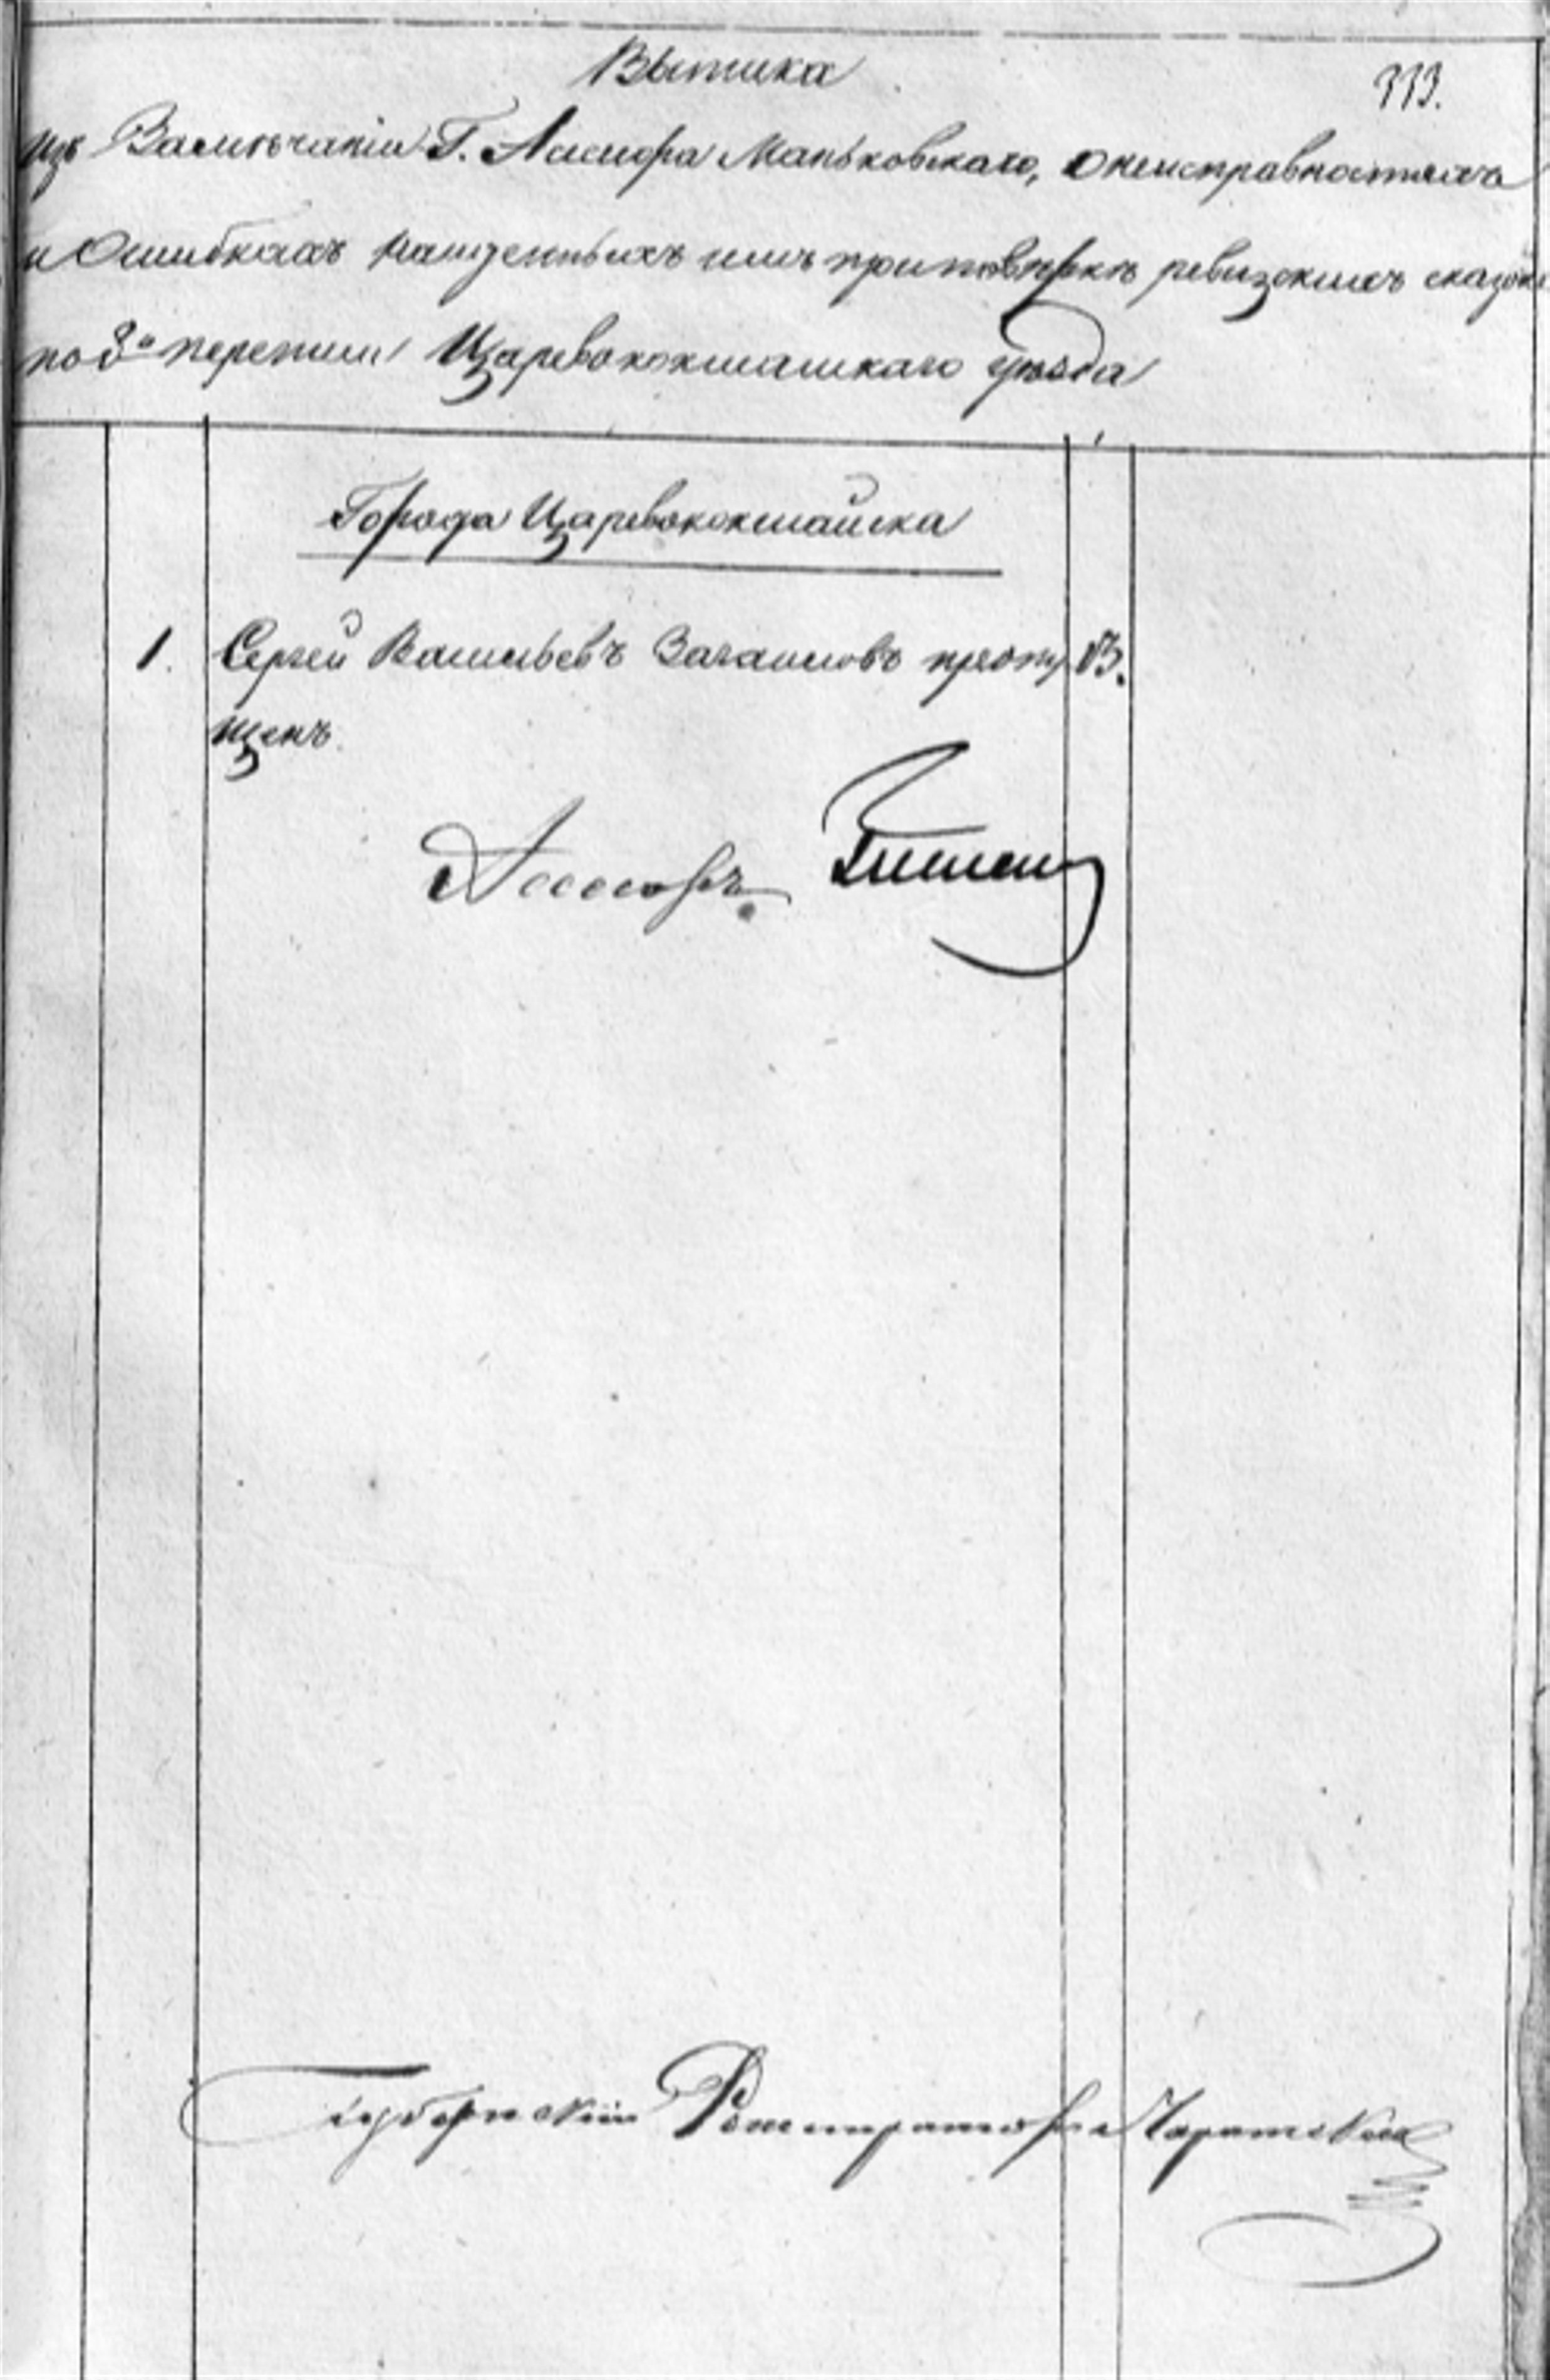 Выписка
333.
изъ Замѣчаніи Г. Ассесора Маньковскаго, о неисправностяхъ
и Ошибкахъ найденныхъ имъ при повѣркѣ ревизскихъ сказокъ
по 8й переписи Царевококшайскаго уѣзда
Города Царевококшайска
1. Сергей Васильевъ пропу
щенъ.
Ассесоръ
Губернскій Регистраторъ